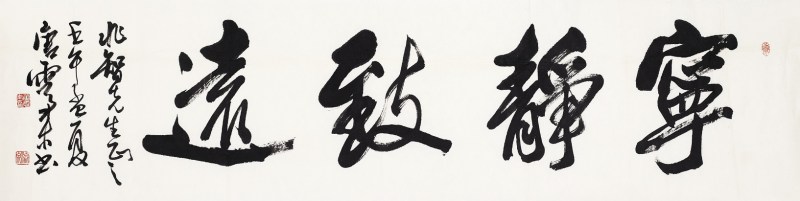 寧靜致遠
兆智先生正之
壬午孟夏
唐雲來書